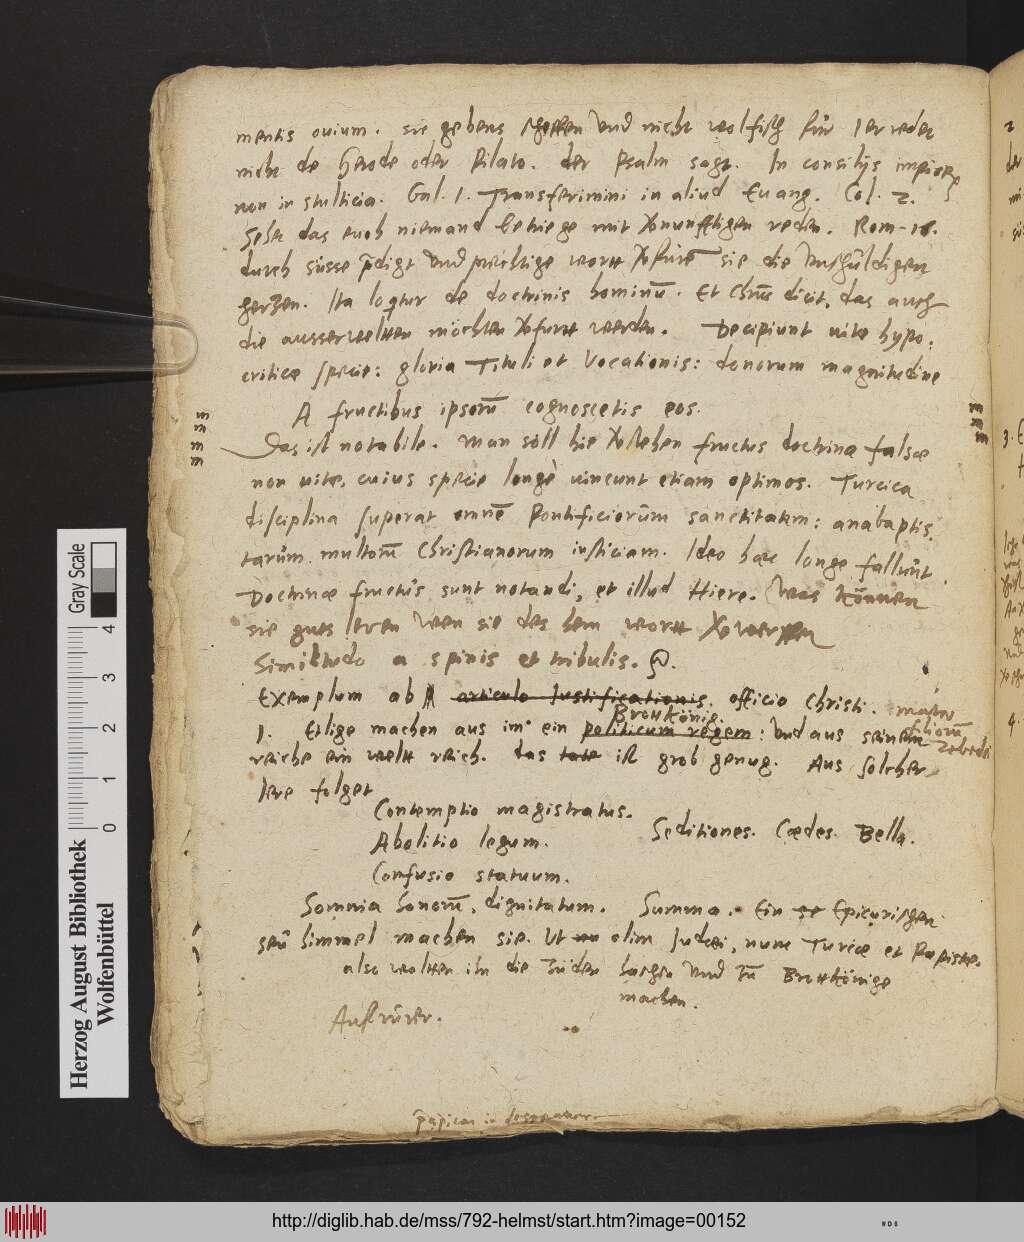 mentis ovium. sie gebens und nicht wolfisch für
nicht de Herode oder Pilato. der Psalm sagt. In consilijs impiorꝝ
non in stulticia. Gal. 1. Transferimini in aliud Euang. Col. 2.
Sehet das euch niemand betriege mit vernunfftigen reden. Rom. 16.
durch süsse p̄digt und prechtige wortt verfuren sie die Unschüldigen
hertzen. Ita loqtur de doctrinis hominū. Et Chrūs dicit, das auch
die ausserwelten möchten verfurtt werden. Decipiunt vite hypo-
criticæ specie: gloria Tituli et Vocationis: donorum magnitudine
A fructibus ipsorū cognoscetis eos.
Das ist notabile. man soll hie verstehen fructus doctrinæ falsæ
non vitæ, cuius specie longè vincunt etiam optimos. Turcica
disciplina superat omnē Pontificiorūm sanctitatem: anabaptis-
tarūm multorū Christianorum iusticiam. Ideo hæc longe fallunt.
Doctrinæ fructus sunt notandi, et illud Hiere. Was können
sie guts leren wen sie des hern wortt verwerffen
Similitudo a spinis et tribulis.
Exemplum ab articulo Iustificationis. officio Christi. mater
filiorū
Zebedei
Brottkönig.
1. Etlige machen aus im ein politicum regem: Und aus seinem
reiche ein weltt reich. das tate ist grob genug. Aus solcher
lere folget
Contemptio magistratus.
Abolitio legum. Seditiones. Cædes. Bella.
Confusio statuum.
Somnia honorū, dignitatum. Summa. Ein Epicurischen
seū himmel machen sie. Ut olim Judæi, nunc Turcæ et Papistæ.
also wolten ihn die Jüden haschen und zū Brottkönige
machen.
Auffrürer.
Herzog August Bibliothek
Wolfenbüttel
Gray Scale
0 1 2 3 4
http://diglib.hab.de/mss/792-helmst/start.htm?image=00152